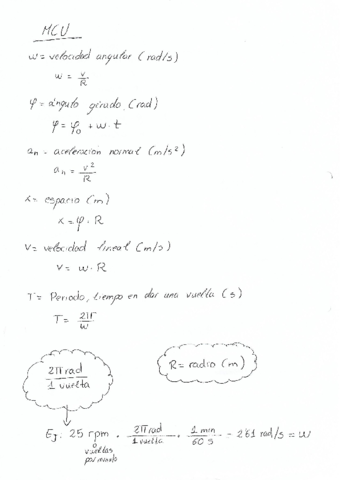 MCU
ω = velocidad angular (rad/s)
ω = v/R
φ = ángulo girado (rad)
φ = φ₀ + ω · t
aₙ = aceleración normal (m/s²)
aₙ = v²/R
x = espacio (m)
x = φ · R
v = velocidad lineal (m/s)
v = ω · R
T = Periodo, tiempo en dar una vuelta (s)
T = 2π/ω
2π rad / 1 vuelta
R = radio (m)
Ej: 25 rpm · 2π rad / 1 vuelta · 1 min / 60 s = 2'61 rad/s = ω
o
vueltas
por minuto